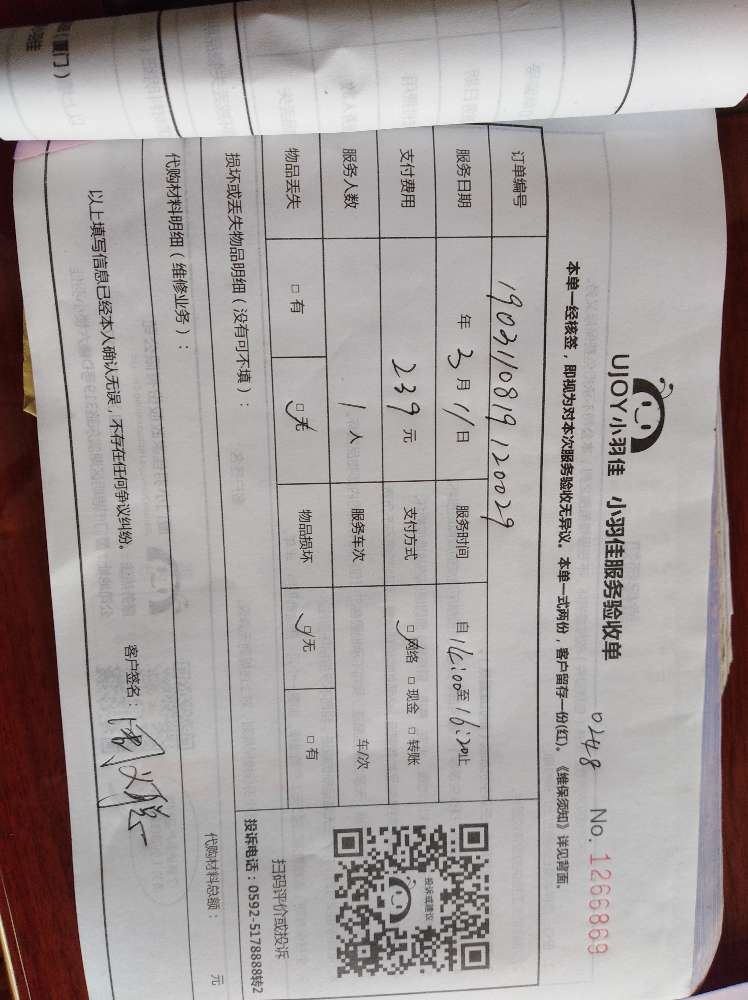 UJOY小羽佳 小羽佳服务验收单
0248 No. 1266869
本单一经核签，即视为对本次服务验收无异议。本单一式两份，客户留存一份(红)。《维保须知》详见背面。
订单编号 1903110819120029
服务日期 年 3 月 11 日 服务时间 自 14:00 至 16:20 止
支付费用 239 元 支付方式 ☑网络 □现金 □转账
服务人数 1 人 服务车次 车/次
物品丢失 □有 ☑无 物品损坏 ☑无 □有
投诉或建议
扫码评价或投诉
投诉电话：0592-5178888转2
损坏或丢失物品明细（没有可不填）：
代购材料明细（维修业务）： 代购材料总额： 元
以上填写信息已经本人确认无误，不存在任何争议纠纷。 客户签名：
（厦门）